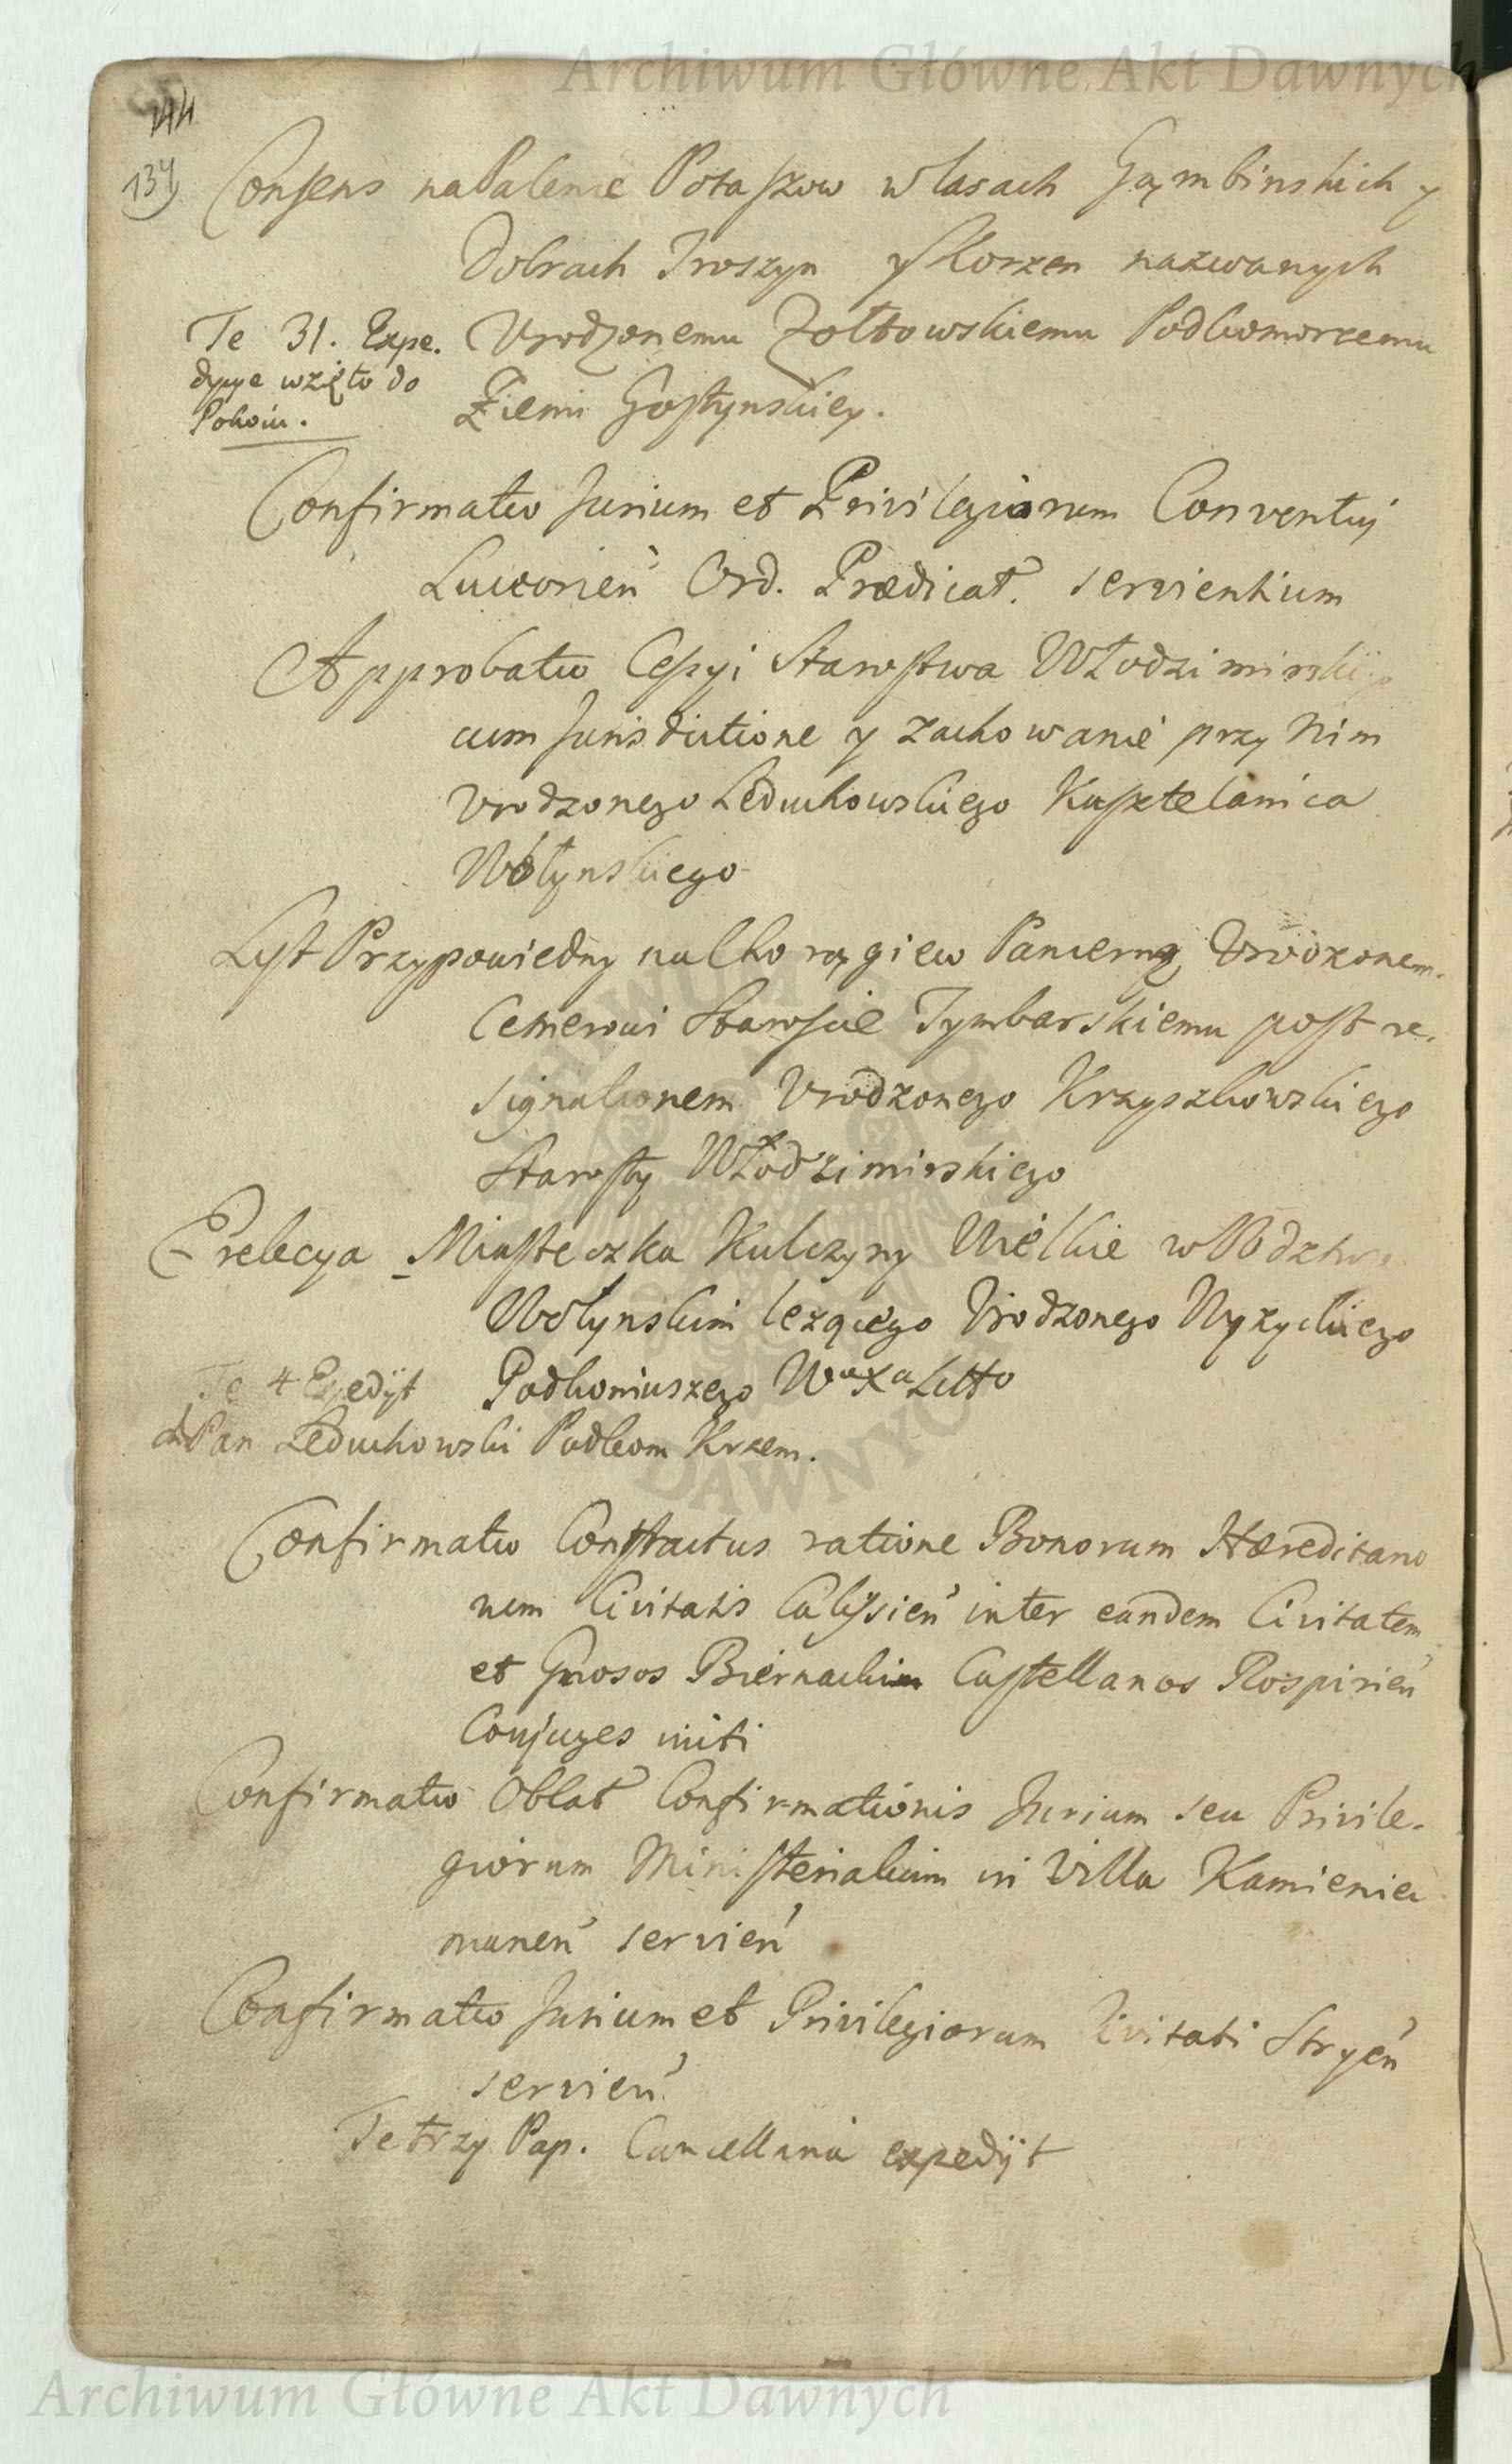 Archiwum Główne Akt Dawnych
144
134
Consens na Palenie Potaszow w lasach Gąmbinskich y
Dobrach Troszyn y Korzen nazwanych
Te 31. Expe. Urodzonemu Zołtowskiemu Podkomorzemu
dycye wzięto do Ziemi Gostynskiey.
Pokoiu.
Confirmatio Jurium et Privilegiorum Conventui
Luceorien Ord. Prædicat. servientium
Approbatio Cessyi Starostwa Włodzimirskiego
cum Jurisdictione y zachowanie przy Nim
Urodzonego Leduchowskiego Kasztelanica
Wołynskiego
Lyst Przypowiedny na Chorągiew Pancerną Urodzonem.
Cetnerowi Staroscie Tymbarskiemu post re.
signationem Urodzonego Krzyszkowskiego
Starosty Włodzimirskiego
Prelecya Miasteczka Kulczyny Wielkie w Wdztwie
Wołynskim lezącego Urodzonego Wyzyckiego
Te 4 Expedijt Podkoniuszego Wo Xa Litto
d Pan Leduchowski Podkom Krzem.
Confirmatio Contractus ratione Bonorum Hæreditario
rum Civitatis Calisien inter eandem Civitatem
et Gnosos Biernackim Castellanos Rospirien
Conjuges initi
Confirmatio Oblat Confirmationis Jurium seu Privile-
giorum Ministerialium in Villa Kamieniec
manen servien
Confirmatio Jurium et Privilegiorum Civitati Stryen
servien
Te trzy Pap. Cancellaria expedijt
Archiwum Główne Akt Dawnych